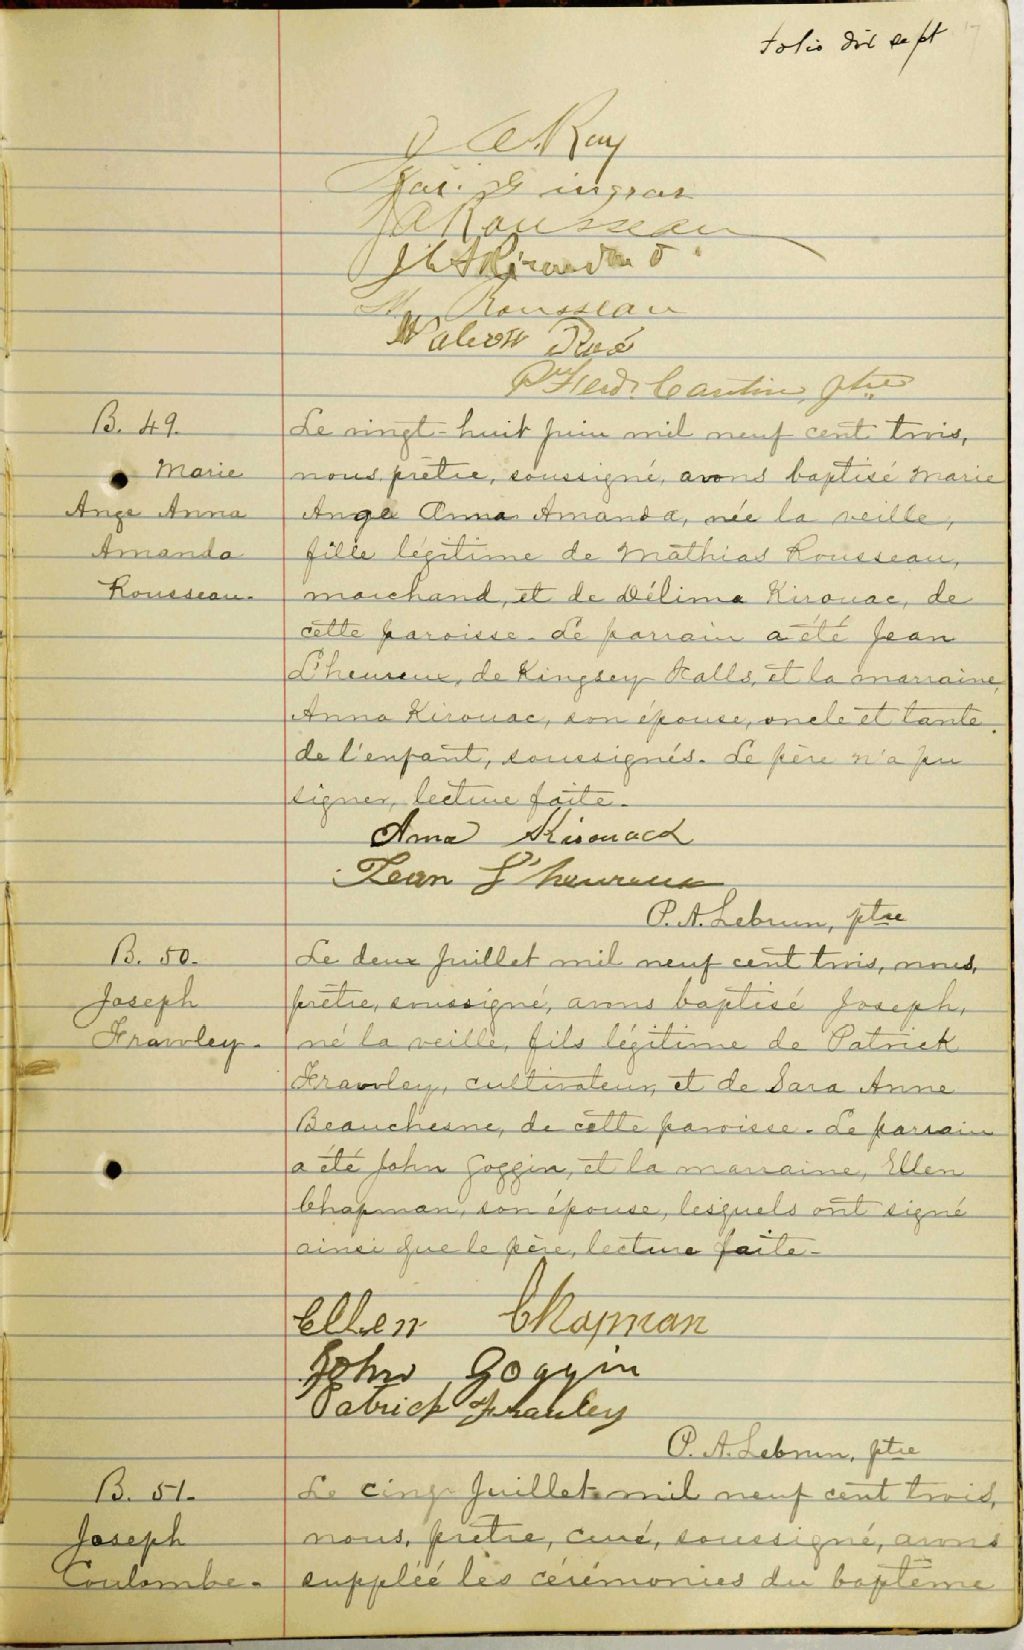 folio dix sept
17
Ray
Gingras
J A Rousseau
Rousseau
Ferd. Cantin, ptre
B. 49.
Marie
Ange Anna
Amanda
Rousseau.
Le vingt-huit juin mil neuf cent trois,
nous prêtre, soussigné, avons baptisé Marie
Ange Anna Amanda, née la veille,
fille légitime de Mathias Rousseau,
marchand, et de Délima Kirouac, de
cette paroisse. Le parrain a été Jean
L'heureux, de Kingsey Falls, et la marraine,
Anna Kirouac, son épouse, oncle et tante
de l'enfant, soussignés. Le père n'a pu
signer, lecture faite.
Anna Kirouack
Jean L'heureux
P.A. Lebrun, ptre
B. 50.
Joseph
Frawley.
Le deux Juillet mil neuf cent trois, nous,
prêtre, soussigné, avons baptisé Joseph,
né la veille, fils légitime de Patrick
Frawley, cultivateur, et de Sara Anne
Beauchesne, de cette paroisse. Le parrain
a été John Goggin, et la marraine, Ellen
Chapman, son épouse, lesquels ont signé
ainsi que le père, lecture faite.
Ellen Chapman
John Goggin
Patrick Frawley
P. A. Lebrun, ptre
B. 51.
Joseph
Coulombe.
Le cinq Juillet mil neuf cent trois,
nous, prêtre, curé, soussigné, avons
suppléé les cérémonies du baptême